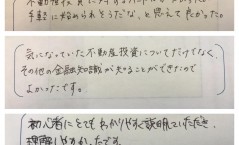 不動産投資に対
手軽に始められそうだな、と思えて良かった。
気になっていた不動産投資についてだけでなく、
その他の金融知識が知ることができたので
よかったです。
初心者にとてもわかりやすく説明していただき、
理解しやすかったです。